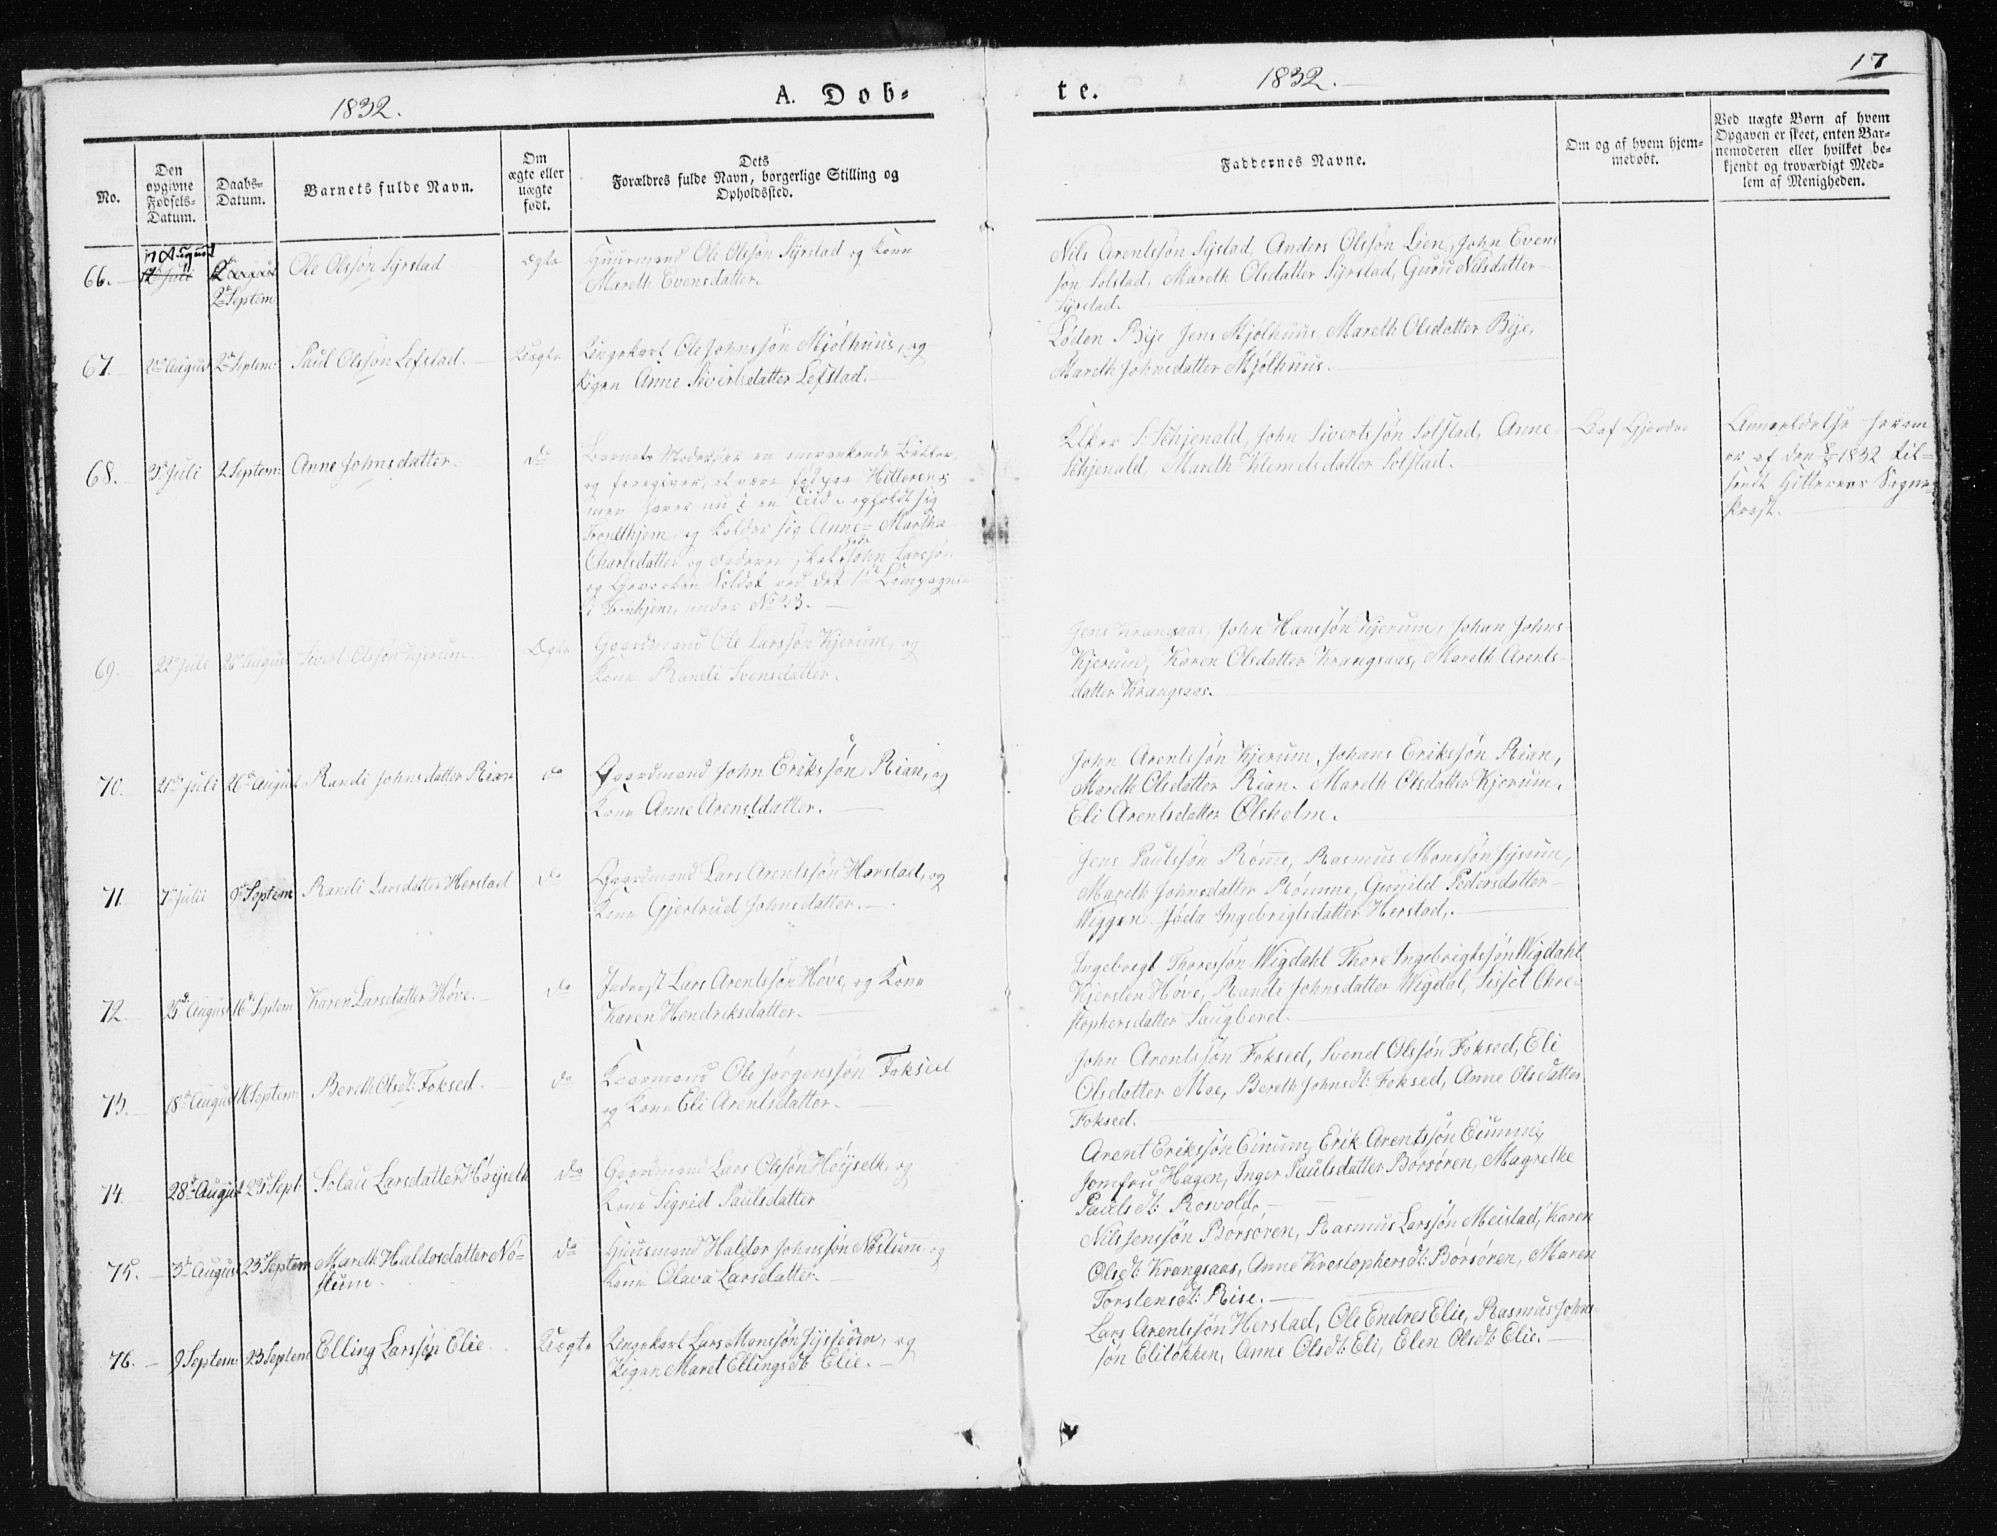 1832.
A. Dob-
te.
1832.
17
No.
Den opgivne Fødsels-Datum.
Daabs-Datum.
Barnets fulde Navn.
Om ægte eller uægte født.
Dets Forældres fulde Navn, borgerlige Stilling og Opholdssted.
Faddernes Navne.
Om og af hvem hjemmedøbt.
Ved uægte Børn af hvem Opgaven er skeet, enten Barnemoderen eller hvilket bekjendt og troværdigt Medlem af Menigheden.
66. 2den Septem Ole Olssøn Syrstad Ægte Huusmand Ole Olssøn Syrstad og Kone
Mareth Evensdatter.
Nils Arentssøn Syrstad, Anders Olssøn Lien, John Evens
søn Solstad, Mareth Olsdatter Syrstad, Guru Nilsdatter
Syrstad.
67. August 2den Septem: Paul Olssøn Lefstad. Uægte Ungekarl Ole Johnssøn Mjølhuus, og
Pigen Anne Sivertsdatter Lefstad.
Loden Bye Jens Mjølhuus Mareth Olsdatter Bye,
Mareth Johnsdatter Mjølhuus.
68. 3de Juli 2 Septem: Anne Johnsdatter. do Barnets Moder er en omvankende
og foregiver, at være fød paa Hitteren,
men haver nu i en Tiid opholdt sig
Trondhjem, og kalder sig Anne Martha
Charlsdatter og Faderen skal hede John Larssøn
og Soldat ved det 1ste Compagnie
i Tronhjem, under No 23.
S. Schjenald, John Sivertssøn Solstad, Anne
Schjenald, Mareth Klemetsdatter Solstad.
Anmeldelse herom
er af den 1832 til-
sendt Hitterens Sogne-
Præst.
69. 22de Juli 26 August Sivert Olssøn Kjerum. Ægte Gaardmand Ole Larssøn Kjerum, og
Kone Randi Svensdatter.
Jens Krangsaas, John Hanssøn Kjerum, Johan Johns-
Kjerum, Karen Olsdatter Krangsaas, Mareth Arents-
datter Krangsaas.
70. 21de Juli 26de August Randi Johnsdatter Rian do Gaardmand John Erikssøn Rian, og
Kone Anne Arensdatter.
John Arentssøn Kjerum, Johans Erikssøn Rian,
Mareth Olsdatter Rian. Mareth Olsdatter Kjerum.
Eli Arentsdatter Olsholm.
71. 7de Julii 9de Septem Randi Larsdatter Herstad do Gaardmand Lars Arentssøn Herstad, og
Kone Gjertrud Johnsdatter.
Jens Paulssøn Rømme, Rasmus Monssøn
Mareth Johnsdatter Rømme, Gunild Pedersdatter
Wiggen. Ingebrigtsdatter Herstad.
72. 25de August 16de Septem Karen Larsdatter Høve. do Inderst Lars Arentssøn Høve, og Kone
Karen Hendriksdatter.
Ingebregt Thoressøn Wigdahl Thore Ingebrigtssøn Wigdahl
Kjersten Høve, Randi Johnsdatter Wigdal, Sisset Chre-
stophersdatter Saugberet.
73. 18de August 16 Septem: Bereth Olsdt: Foksed. do Ole Jørgenssøn Foksed
og Kone Eli Arentsdatter.
John Arentssøn Foksed, Svend Olssøn Foksed, Eli
Olsdatter Moe, Bereth Johnsdt: Foksed, Anne Olsdatter
Foksed.
74. 28de August 23de Sept. Solau Larsdatter Høyseth do Gaardmand Lars Olssøn Høyseth, og
Kone Sigrid Paulsdatter
Arent Erikssøn Einum, Erik Arentssøn Eiumm,
Jomfru Hagen, Inger Paulsdatter Børsøren, Magrethe
Paulsdt: Rosvold.
75. 3de August 23 Septem Mareth Haldorsdatter Nø-
stum. do Huusmand Haldor Johnssøn Nøstum, og
Kone Olava Larsdatter.
Nils Jenssøn Børsøren, Rasmus Larssøn Meistad, Karen
Olsdt: Krangsaas, Anne Krestophersdt: Børsøren, Maren
Torstensdt: Rise.
76. 9 Septem: 23 Septem: Elling Larssøn Elie. Uægte Ungekarl Lars Monssøn og
Pigen Maret Ellingsdt: Elie.
Lars Arentssøn Herstad, Ole Endres Elie, Rasmus Johns-
søn Elisløkken, Anne Olsdt: Eli, Elen Olsdt: Elie.